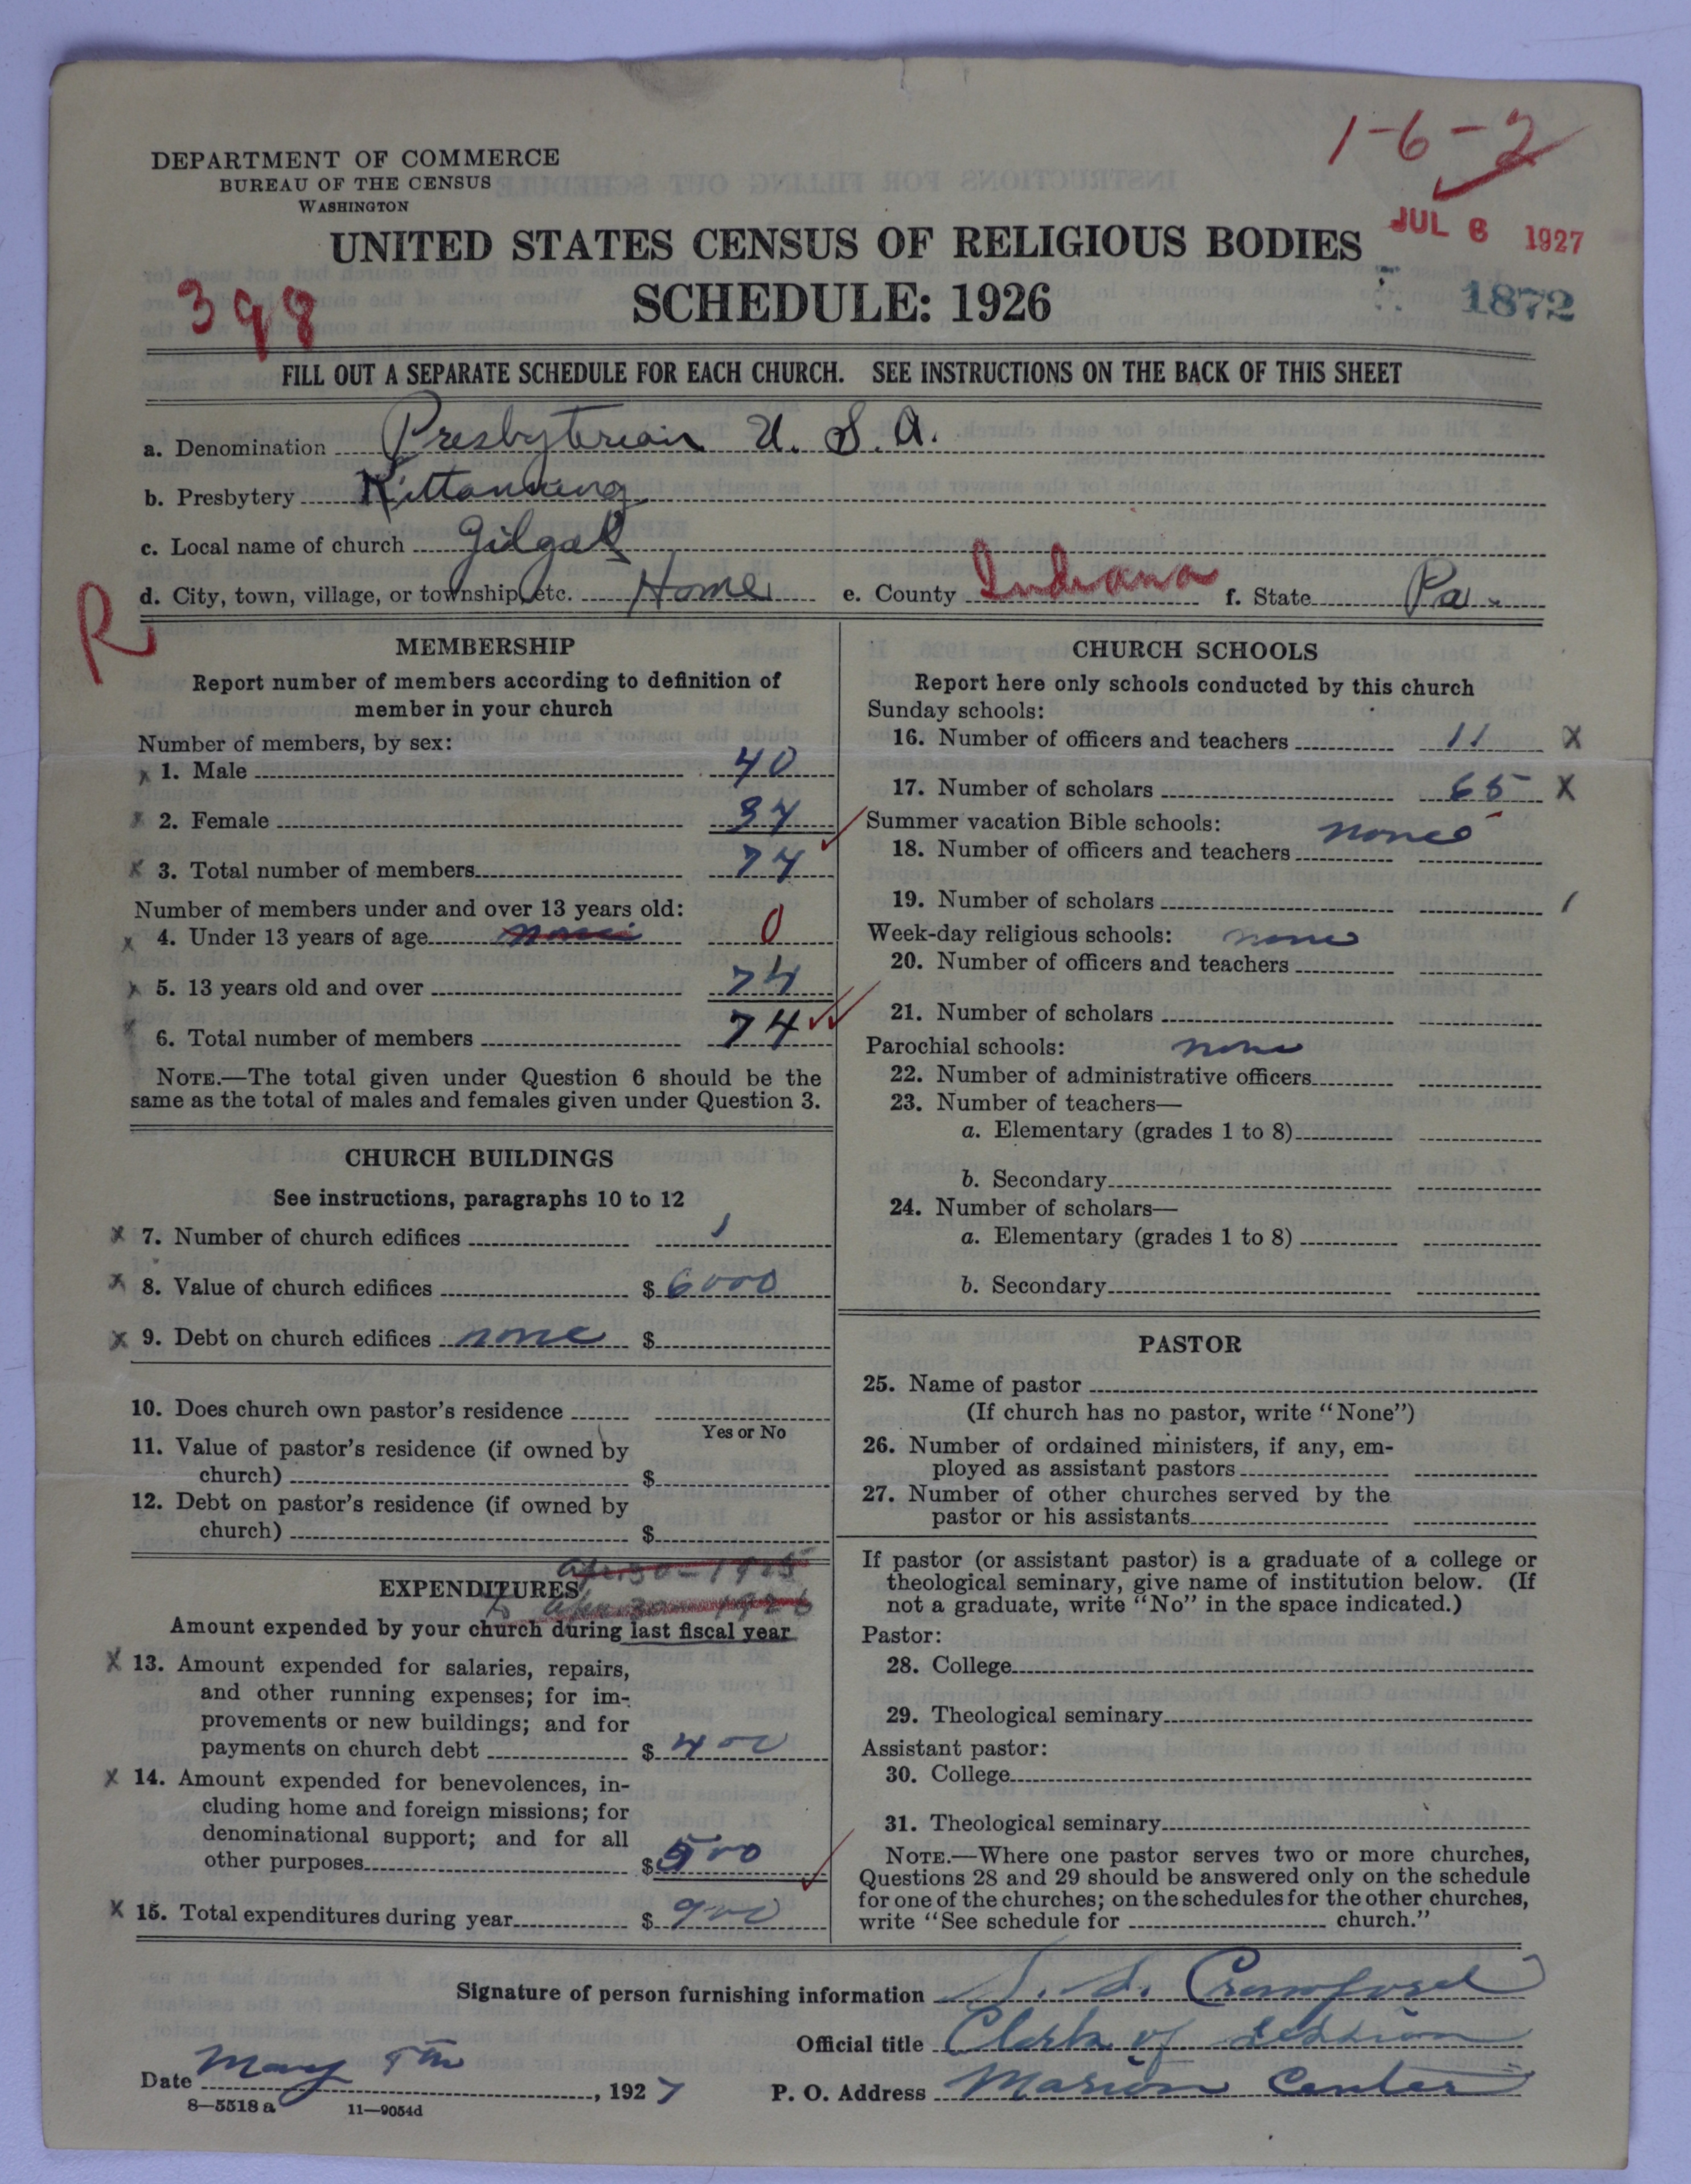 1-6-2
DEPARTMENT OF COMMERCE
BUREAU OF THE CENSUS
WASHINGTON
JUL 6 1927
UNITED STATES CENSUS OF RELIGIOUS BODIES
398
SCHEDULE: 1926
1872
FILL OUT A SEPARATE SCHEDULE FOR EACH CHURCH. SEE INSTRUCTIONS ON THE BACK OF THIS SHEET
a. Denomination Presbyterian U. S. A.
b. Presbytery Kittanning
c. Local name of church Gilgal
d. City, town, village, or township, etc. Home e. County Indiana f. State Pa.
R
MEMBERSHIP
Report number of members according to definition of
member in your church
Number of members, by sex:
x 1. Male 40
x 2. Female 34
x 3. Total number of members 74
Number of members under and over 13 years old:
x 4. Under 13 years of age none 0
x 5. 13 years old and over 74
x 6. Total number of members 74
NOTE.—The total given under Question 6 should be the
same as the total of males and females given under Question 3.
CHURCH BUILDINGS
See instructions, paragraphs 10 to 12
x 7. Number of church edifices 1
x 8. Value of church edifices $ 6000
x 9. Debt on church edifices none $
10. Does church own pastor's residence
Yes or No
11. Value of pastor's residence (if owned by
church) $
12. Debt on pastor's residence (if owned by
church) $
Apr 30 - 1925
EXPENDITURES
to Apr. 30 - 1926
Amount expended by your church during last fiscal year
x 13. Amount expended for salaries, repairs,
and other running expenses; for im-
provements or new buildings; and for
payments on church debt $ 400
x 14. Amount expended for benevolences, in-
cluding home and foreign missions; for
denominational support; and for all
other purposes $ 500
x 15. Total expenditures during year $ 900
CHURCH SCHOOLS
Report here only schools conducted by this church
Sunday schools:
16. Number of officers and teachers 11 x
17. Number of scholars 65 x
Summer vacation Bible schools: none
18. Number of officers and teachers
19. Number of scholars
Week-day religious schools: none
20. Number of officers and teachers
21. Number of scholars
Parochial schools: none
22. Number of administrative officers
23. Number of teachers—
a. Elementary (grades 1 to 8)
b. Secondary
24. Number of scholars—
a. Elementary (grades 1 to 8)
b. Secondary
PASTOR
25. Name of pastor
(If church has no pastor, write "None")
26. Number of ordained ministers, if any, em-
ployed as assistant pastors
27. Number of other churches served by the
pastor or his assistants
If pastor (or assistant pastor) is a graduate of a college or
theological seminary, give name of institution below. (If
not a graduate, write "No" in the space indicated.)
Pastor:
28. College
29. Theological seminary
Assistant pastor:
30. College
31. Theological seminary
NOTE.—Where one pastor serves two or more churches,
Questions 28 and 29 should be answered only on the schedule
for one of the churches; on the schedules for the other churches,
write "See schedule for church."
Signature of person furnishing information S. S. Crawford
Official title Clerk of Session
Date May 9th, 1927 P. O. Address Marion Center
8—5518 a 11—9054d